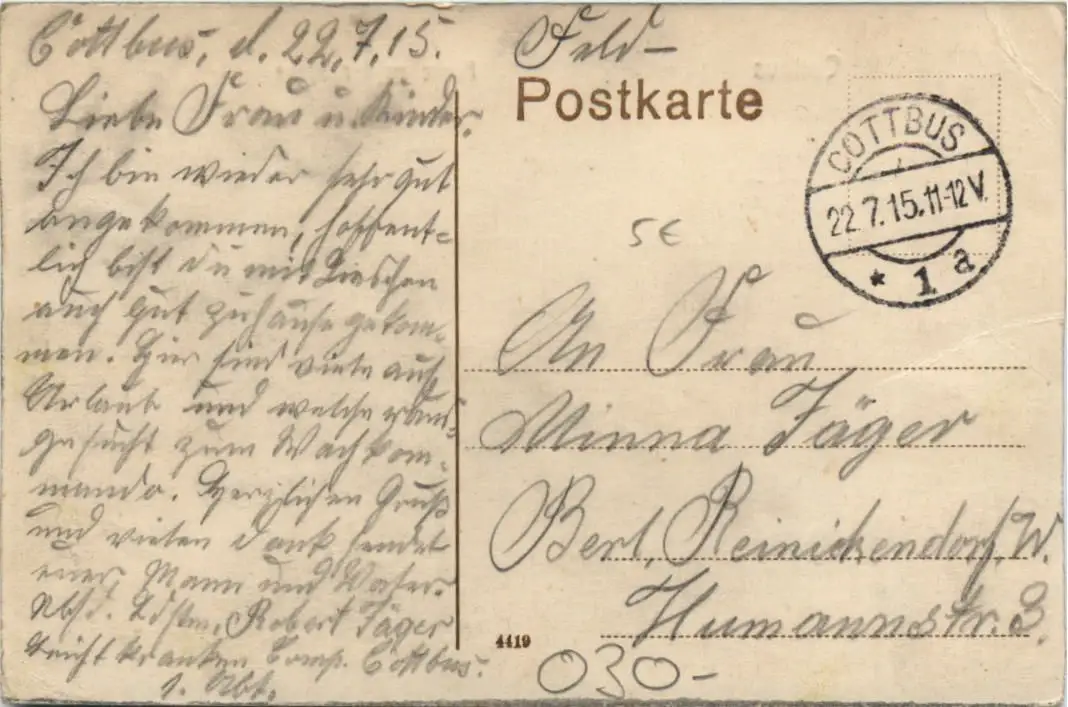 Cottbus, d. 22.7.15.
Liebe Frau u. Kinder.
Ich bin wieder sehr gut
angekommen, hoffent-
lich bist du mit Lieschen
auch gut zuhause gekom-
men. Hier sind viele auf
Urlaub und welche raus-
gesucht zum Wachkom-
mando. Herzlichen Gruß
und vielen Dank sendet
euer Mann und Vater.
Abs. Ldstm. Robert Jäger
Leicht Kranken Comp. Cottbus.
1. Abt.
Feld-
Postkarte
COTTBUS
22.7.15.11-12V.
* 1 a
5€
An Frau
Minna Jäger
Berl. Reinickendorf W.
Humannstr. 3.
4419
030-